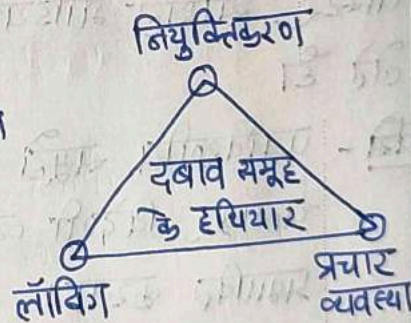 नियुक्तिकरण
दबाव समूह
के हथियार
लॉबिंग
प्रचार
व्यवस्था